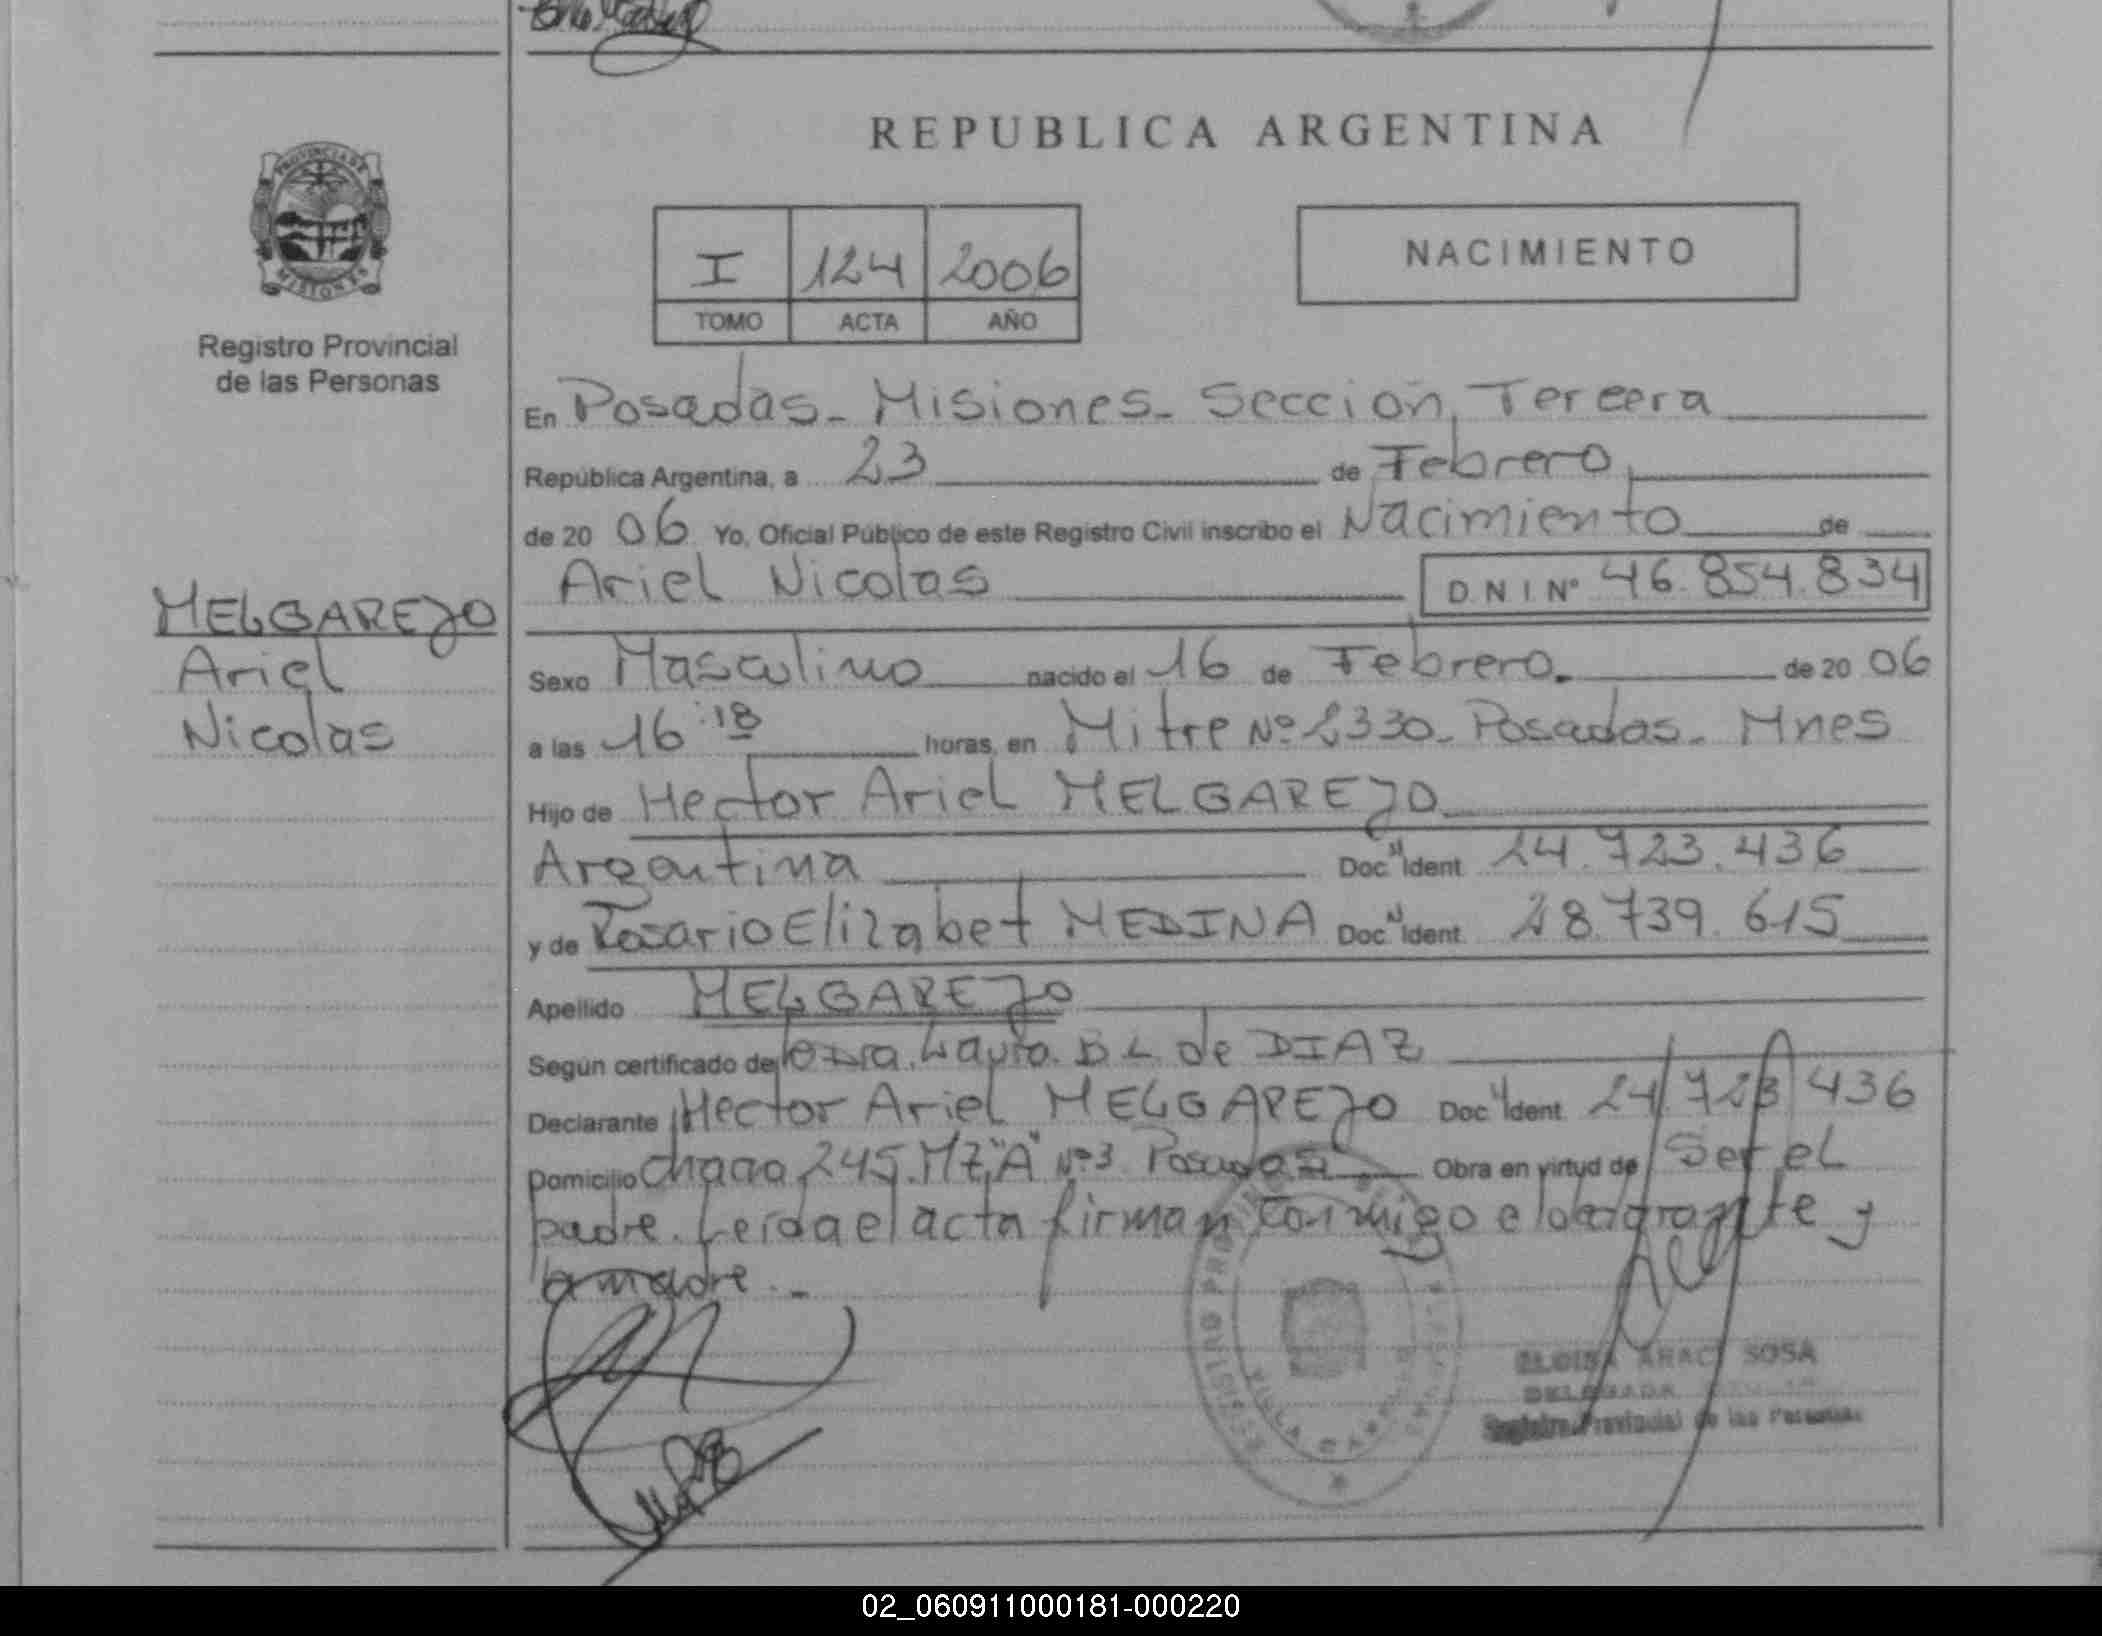 REPUBLICA ARGENTINA
PROVINCIA DE
MISIONES
Registro Provincial
de las Personas
I 124 2006
TOMO ACTA AÑO
NACIMIENTO
En Posadas - Misiones - Sección Tercera
República Argentina, a 23 de Febrero
de 20 06 Yo, Oficial Público de este Registro Civil inscribo el Nacimiento de
Ariel Nicolas D.N.I Nº 46.854.834
MELGAREJO
Ariel
Nicolas
Sexo Masculino nacido el 16 de Febrero. de 20 06
a las 16:18 horas, en Mitre Nº 2330 - Posadas - Mnes
Hijo de Hector Ariel MELGAREJO
Argentina Doc. Ident. 24.723.436
y de Rosario Elizabet MEDINA Doc. Ident. 28.739.615
Apellido MELGAREJO
Según certificado de Dra. Laura B L de DIAZ
Declarante Hector Ariel MELGAREJO Doc. Ident. 24.723.436
Domicilio Chacra 245 MZ "A" Nº 3 Posadas Obra en virtud de Ser el
padre. Leída el acta firman conmigo el declarante y
la madre. -
REGISTRO PROVINCIAL
VILLA CABELLO
SOSA
DELEGADA
Registro Provincial de las Personas
02_060911000181-000220